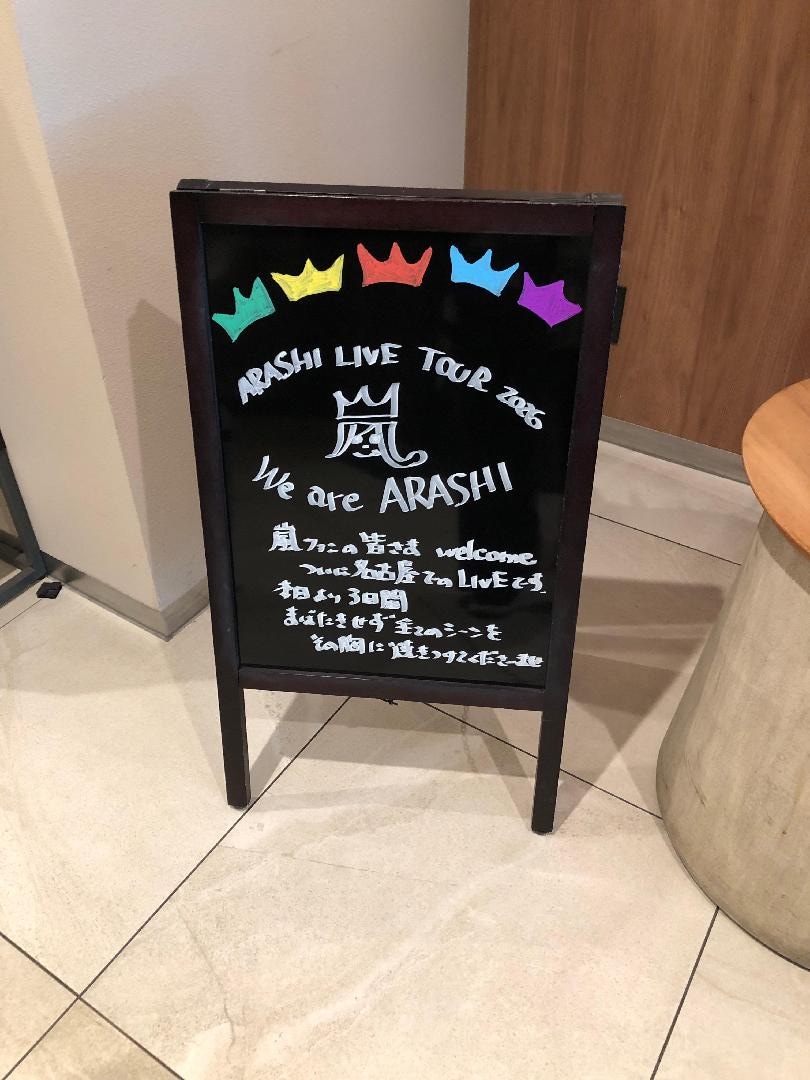 ARASHI LIVE TOUR 2026
嵐
We are ARASHI
嵐ファンの皆さま welcome
ついに名古屋でのLIVEです
本日より3日間
まばたきせず全てのシーンを
その胸に焼きつけてください